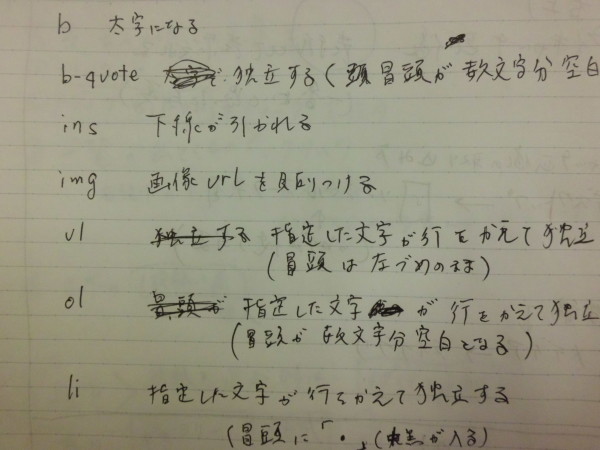 b 太字になる
b-quote 独立する(頭冒頭が数文字分空白
ins 下線が引かれる
img 画像urlを貼りつける
ul 独立する 指定した文字が行をかえて独立
(冒頭は左づめのまま)
ol 冒頭が 指定した文字が行をかえて独立
(冒頭が数文字分空白となる)
li 指定した文字が行をかえて独立する
(冒頭に「・」(黒点が入る)